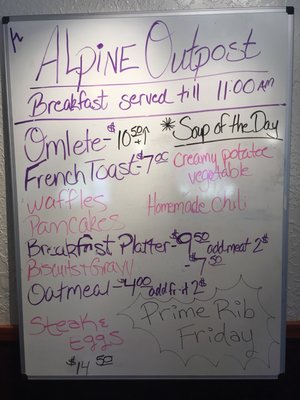 Alpine Outpost
Breakfast served till 11:00 AM
Omlete - $10.50 + ↑
French Toast - $7.00
Waffles
Pancakes
Breakfast Platter - $9.50 add meat 2$
Biscuits & Gravy - $7.50
Oatmeal - $4.00 add fruit 2$
Steak & Eggs
$14.50
*Soup of the Day
Creamy potatoe
vegetable
Homemade Chili
Prime Rib
Friday